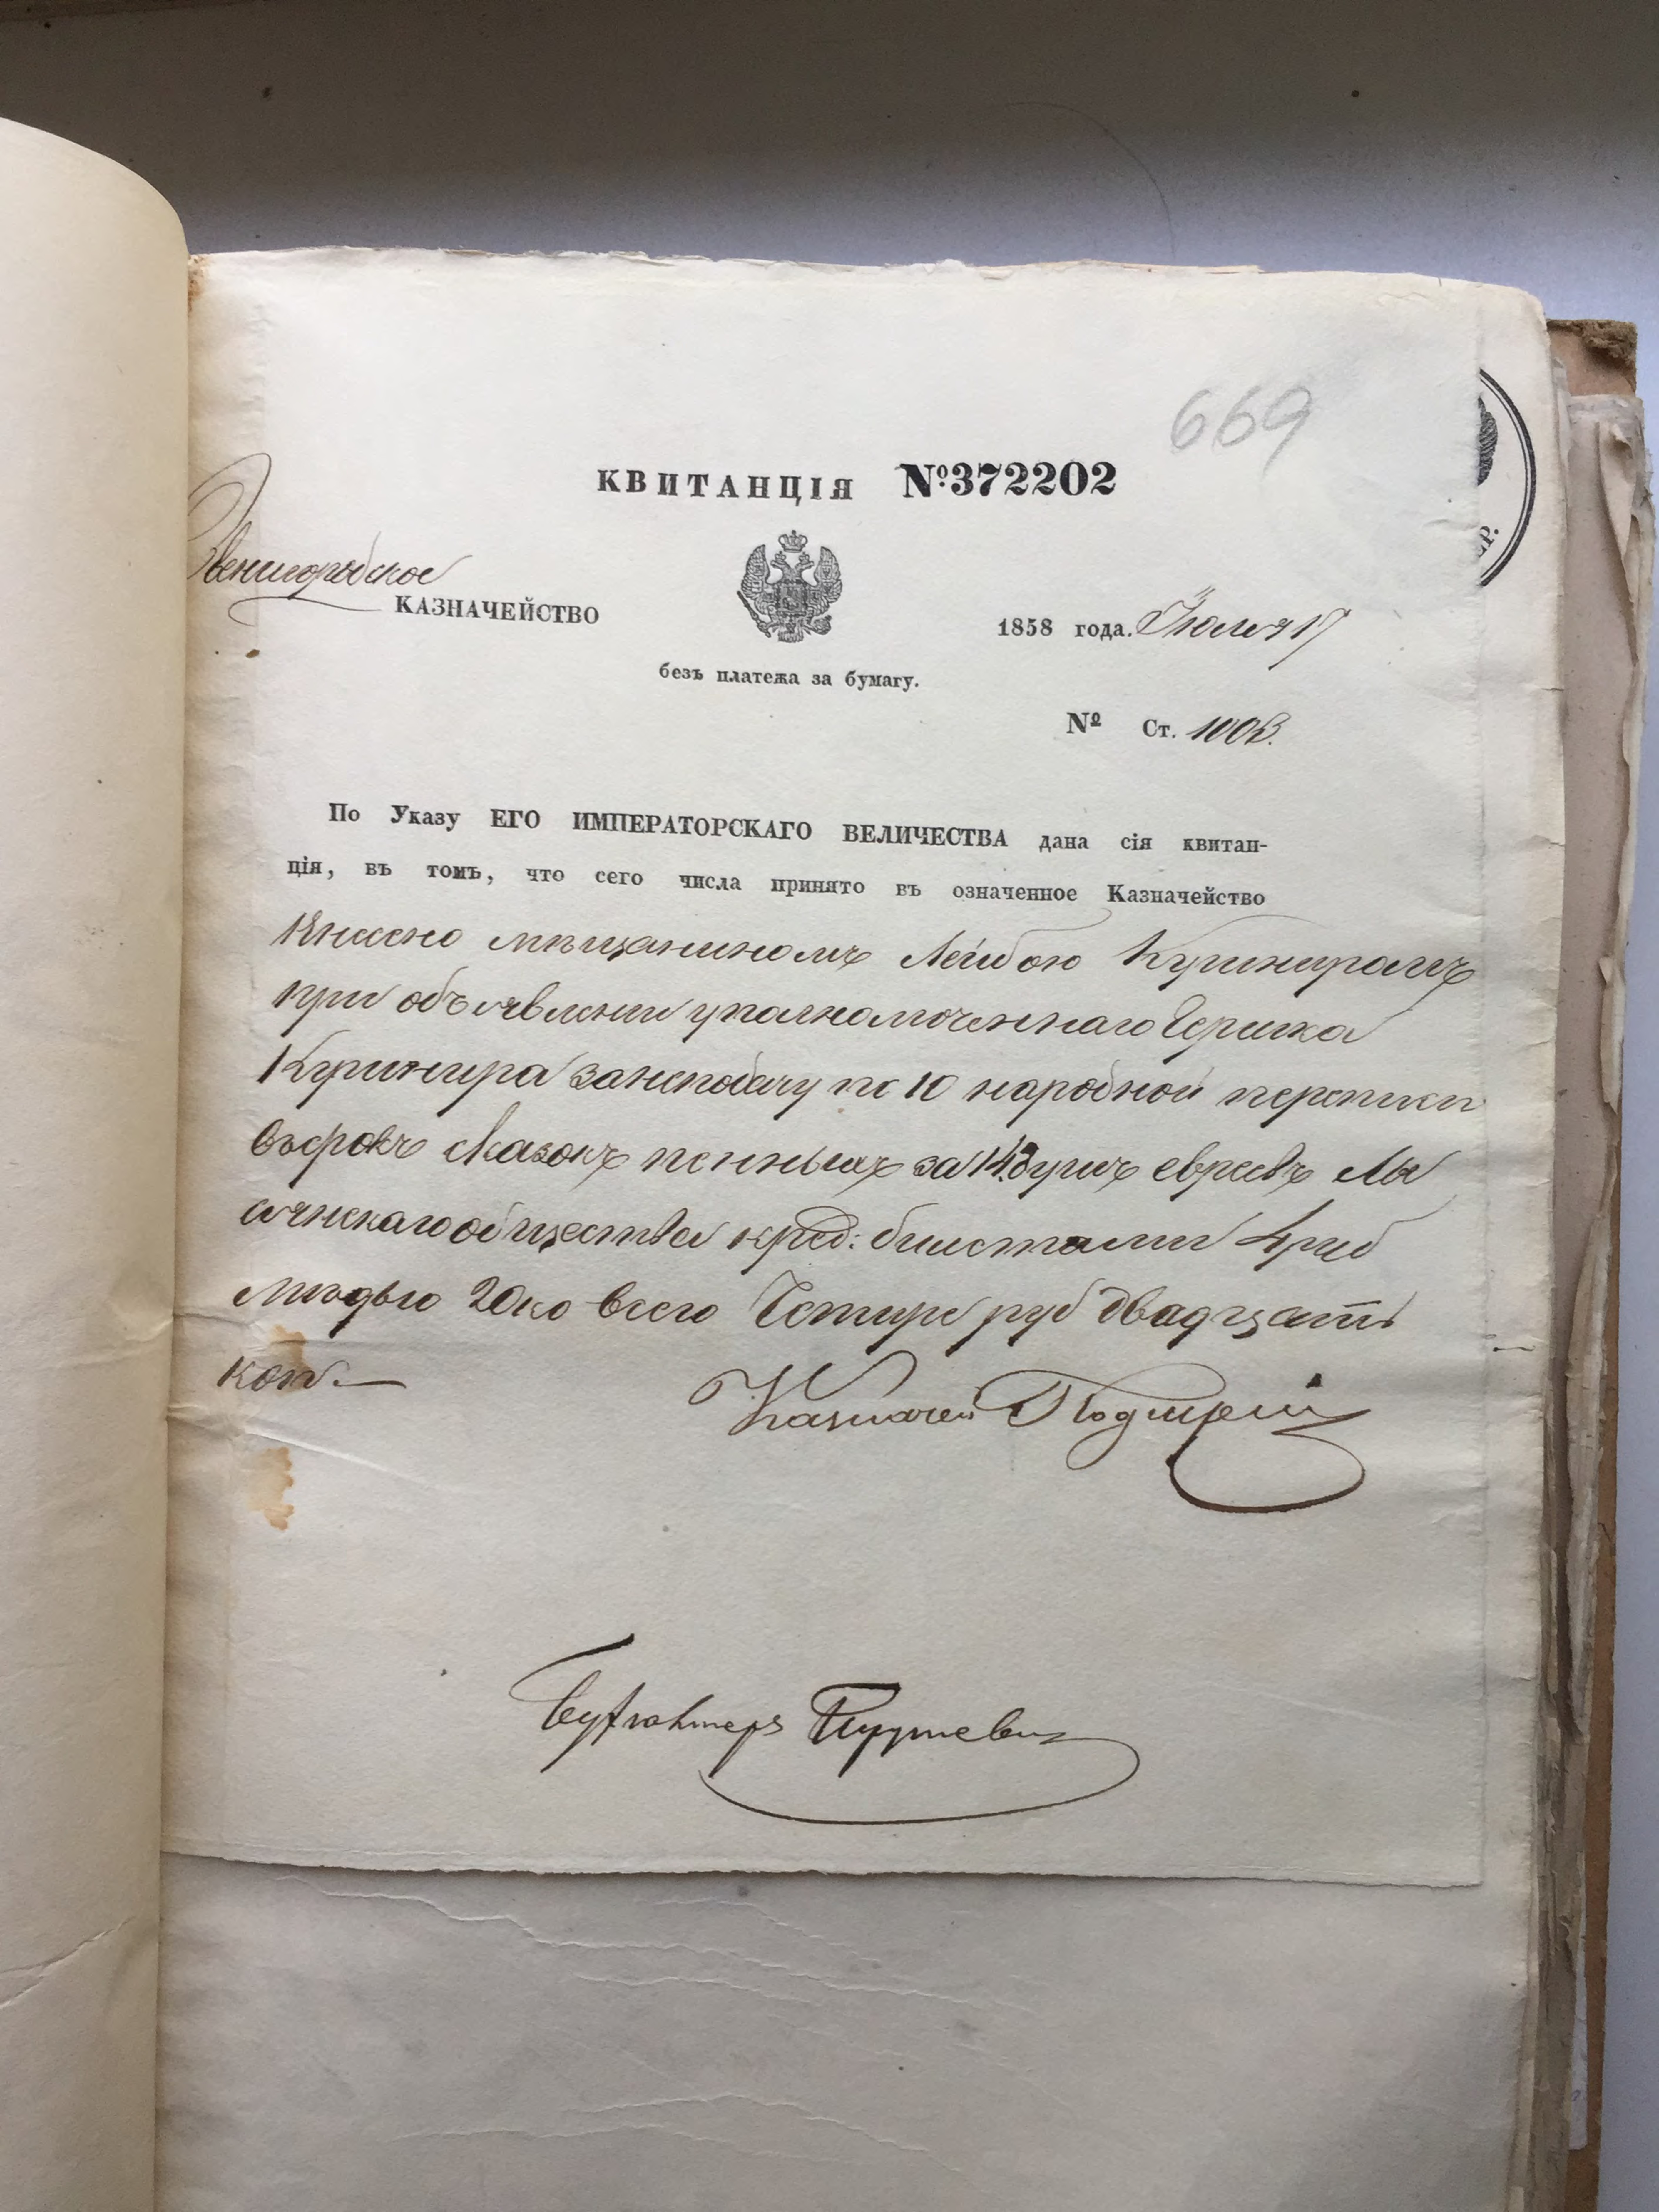 669
КВИТАНЦІЯ №372202
Звенигородское
КАЗНАЧЕЙСТВО
1858 года. Іюля 17
безъ платежа за бумагу.
№ Ст. 1003.
По Указу ЕГО ИМПЕРАТОРСКАГО ВЕЛИЧЕСТВА дана сія квитан-
ція, въ томъ, что сего числа принято въ означенное Казначейство
Внесено мѣщаниномъ Лейбою
при объявленіи уполномоченнаго Гершка
за неподачу по 10 народной переписи
въ срокъ сказокъ пенныхъ за 14 душъ евреевъ Лы
сянскаго общества кред: билетами 4 руб
мѣдью 20 ко всего Четыре руб двадцать
коп.—
Казначей
Бухгалтеръ
Р.